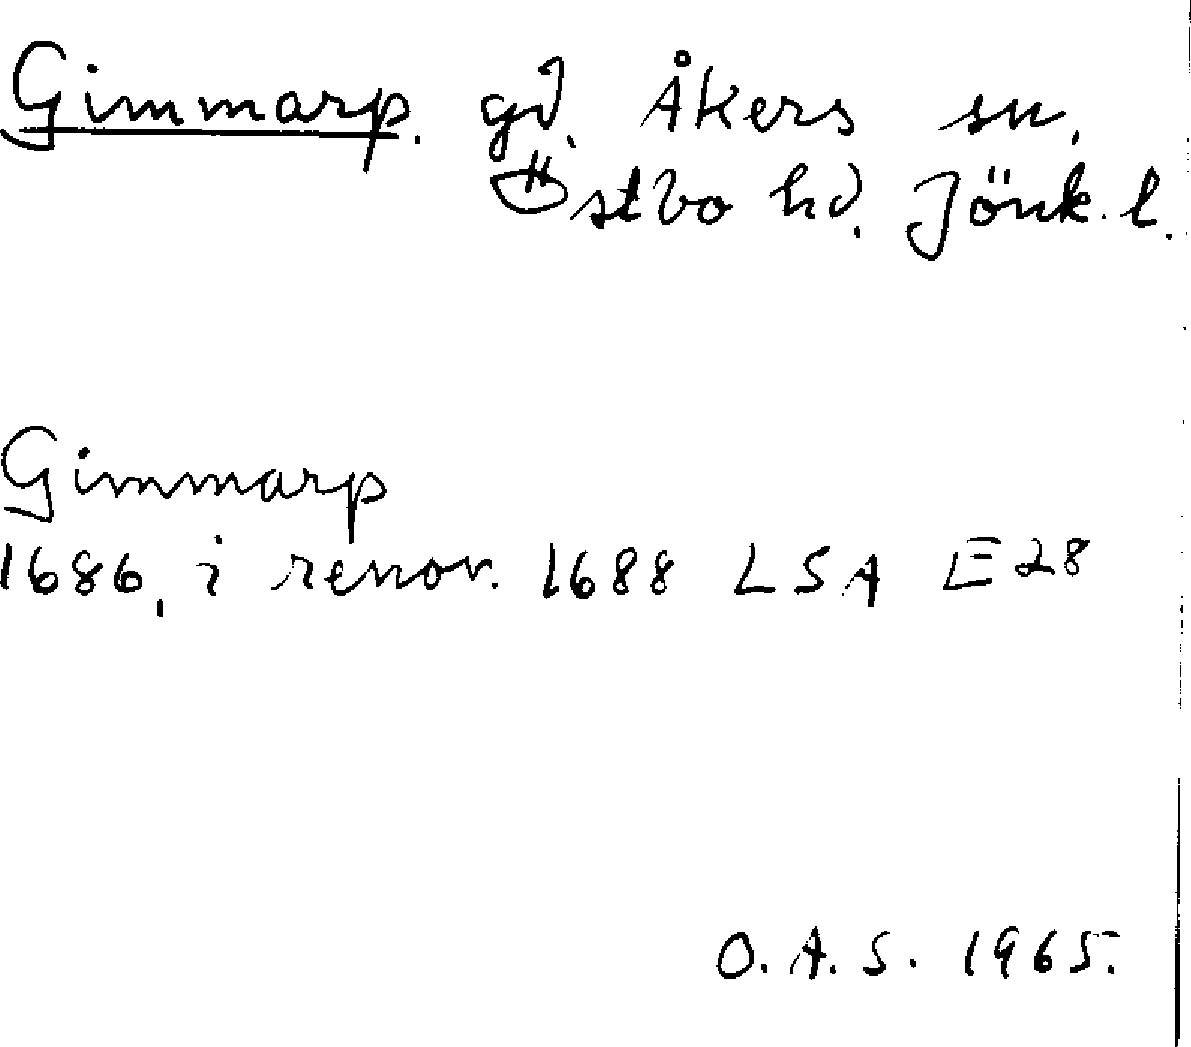 Gimmarp. gd. Åkers sn.
Östbo hd. Jönk. l.
Gimmarp
1686, i renov. 1688 LSA E28
O. A. S. 1965.